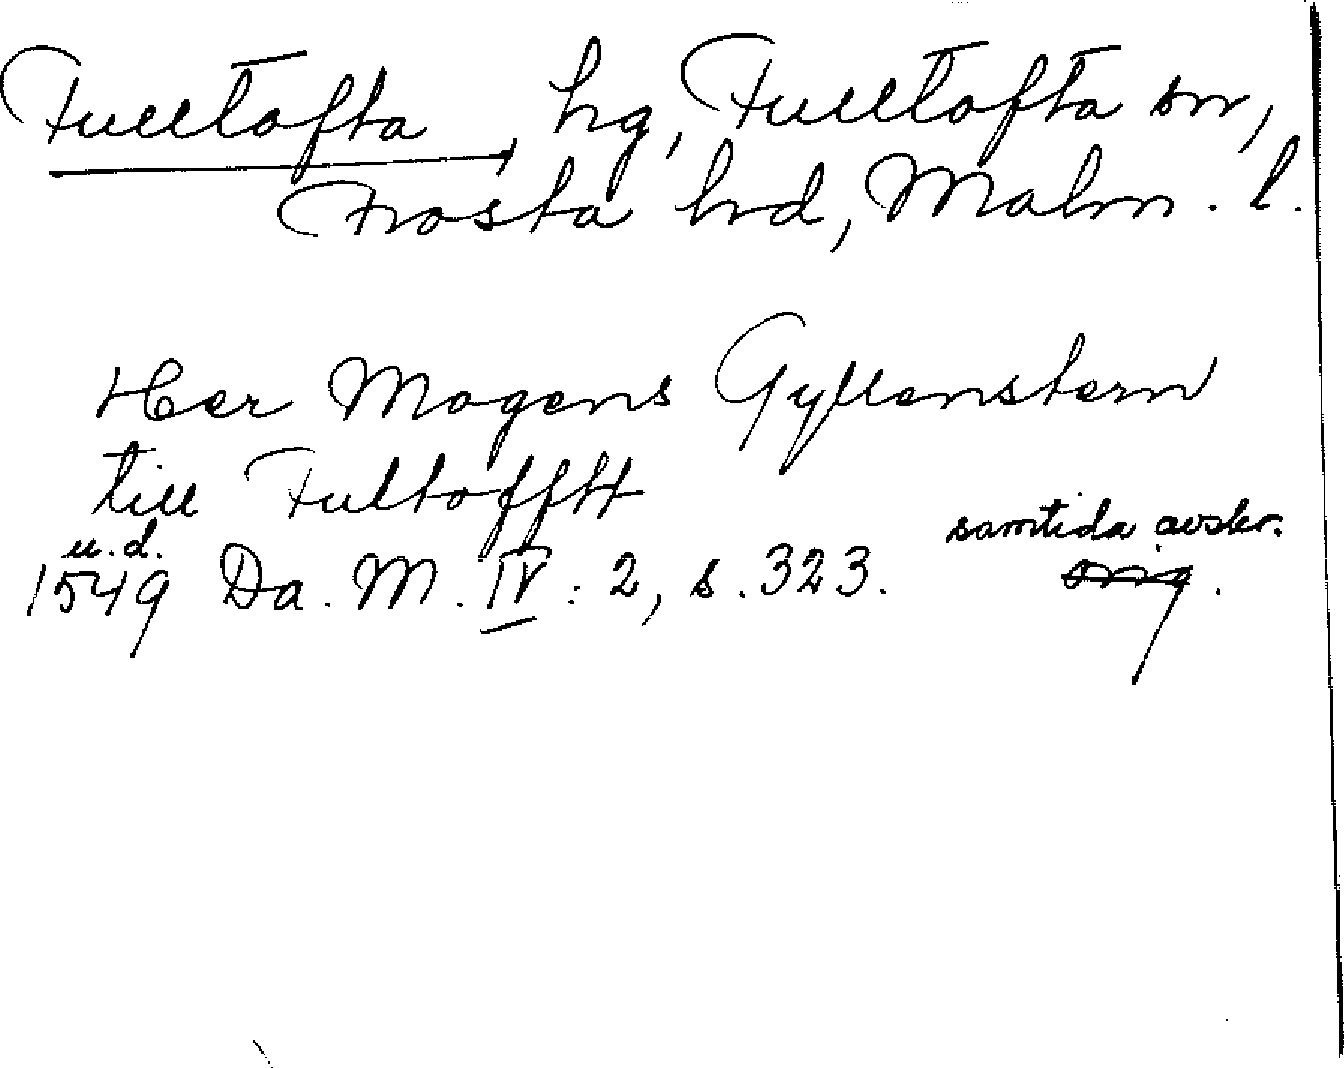 Fulltofta, hg, Fulltofta sn,
Frosta hd, Malm. l.
Her Mogens Gyllenstern
till Fultofftt
u. d.
samtida avskr.
1549 Da. M. IV: 2, s. 323. orig.